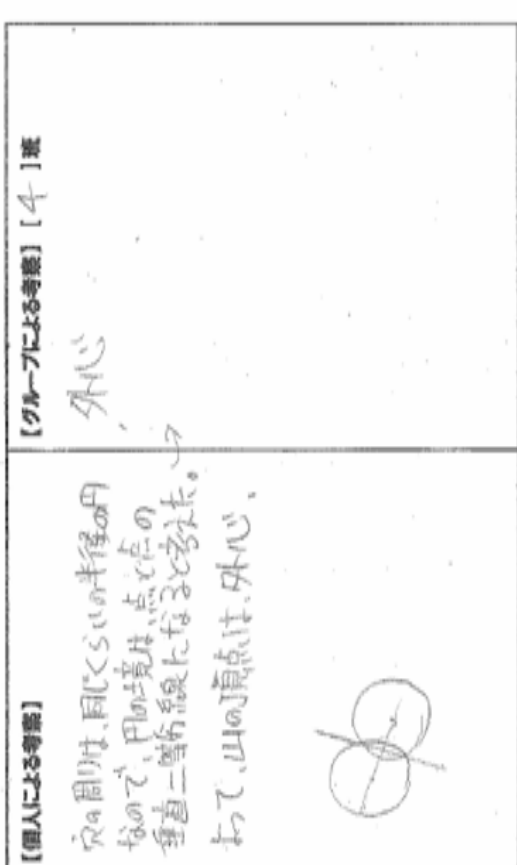 【個人による考察】
穴の周りは、同じくらいの半径の円
なので、円の境は、点と点の
垂直二等分線になると考えた。
よって、山の頂点は、外心。
【グループによる考察】 [ 4 ] 班
外心